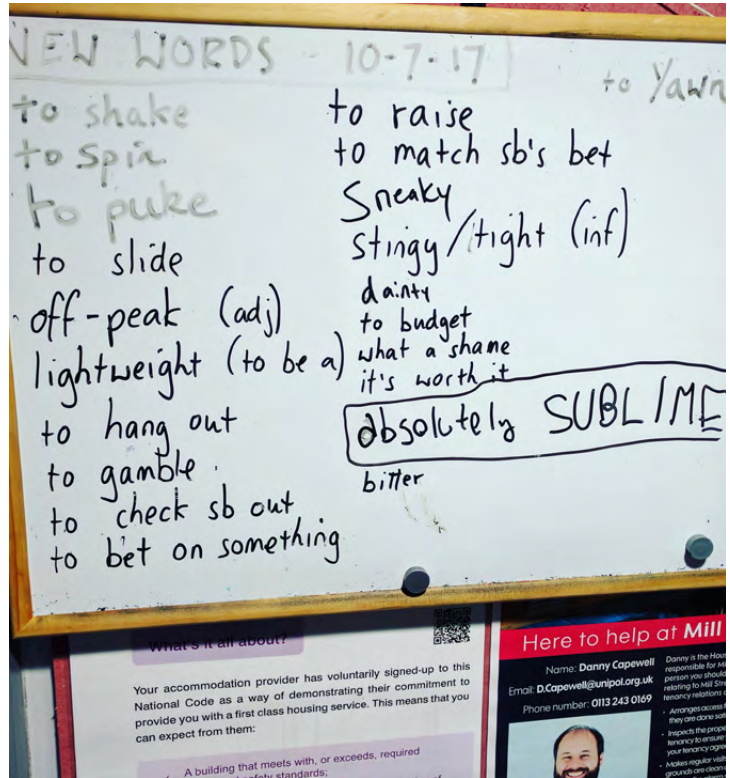 NEW WORDS - 10-7-17
to Yawn
to shake
to spin
to puke
to slide
off-peak (adj)
lightweight (to be a)
to hang out
to gamble
to check sb out
to bet on something
to raise
to match sb's bet
Sneaky
stingy/tight (inf)
dainty
to budget
what a shame
it's worth it
absolutely SUBLIME
bitter
What's it all about?
Your accommodation provider has voluntarily signed-up to this
National Code as a way of demonstrating their commitment to
provide you with a first class housing service. This means that you
can expect from them:
A building that meets with, or exceeds, required
safety standards;
Here to help at Mill
Name: Danny Capewell
Email: D.Capewell@unipol.org.uk
Phone number: 0113 243 0169
Danny is the Hous
responsible for Mi
person you should
relating to Mill Stre
tenancy relations
Arranges access f
they are done safe
Inspects the prope
tenancy to ensure
your tenancy agree
Makes regular visits
grounds are clean